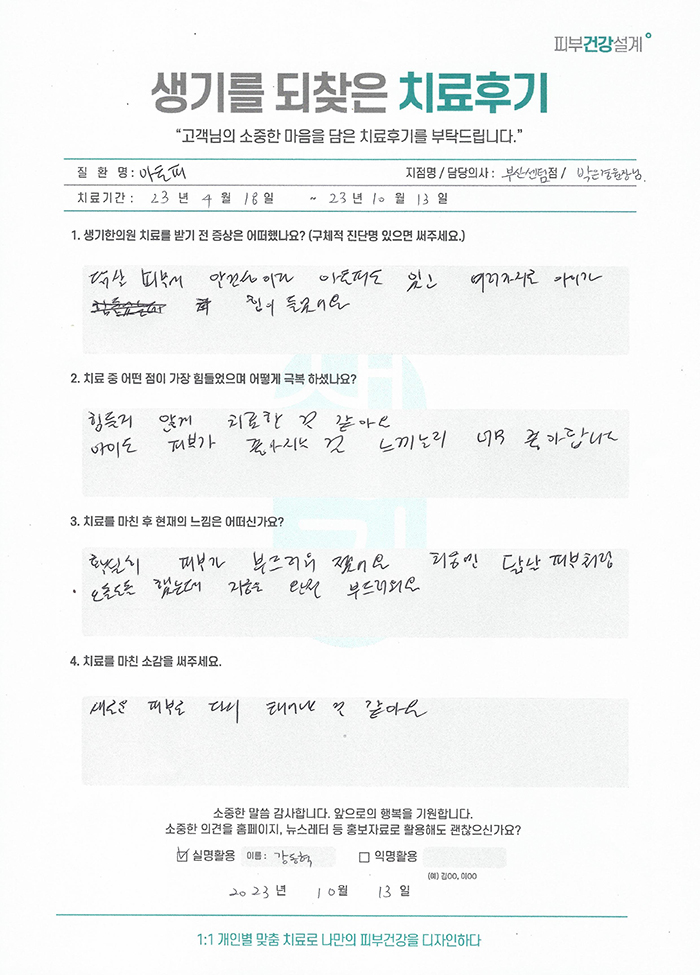 피부건강설계
생기를 되찾은 치료후기
“고객님의 소중한 마음을 담은 치료후기를 부탁드립니다.”
질 환 명 : 아토피 지점명 / 담당의사 : 부산센텀점 / 원장님.
치료기간 : 23 년 4 월 18 일 ~ 23 년 10 월 13 일
1. 생기한의원 치료를 받기 전 증상은 어떠했나요? (구체적 진단명 있으면 써주세요.)
닭살 피부에 아토피도 있고 여러가지로 아이가
힘이 들었어요
2. 치료 중 어떤 점이 가장 힘들었으며 어떻게 극복 하셨나요?
힘들지 않게 치료한 것 같아요
아이도 피부가 좋아지는 걸 느끼느라 너무 좋아합니다
3. 치료를 마친 후 현재의 느낌은 어떠신가요?
확실히 피부가 부드러워 졌어요 닭살 피부처럼
오돌도돌 했는데 지금은 완전 부드러워요
4. 치료를 마친 소감을 써주세요.
새로운 피부로 다시 태어난 것 같아요
소중한 말씀 감사합니다. 앞으로의 행복을 기원합니다.
소중한 의견을 홈페이지, 뉴스레터 등 홍보자료로 활용해도 괜찮으신가요?
실명활용 이름 : 강동혁 익명활용
(예) 김OO, 이OO
2023 년 10 월 13 일
1:1 개인별 맞춤 치료로 나만의 피부건강을 디자인하다